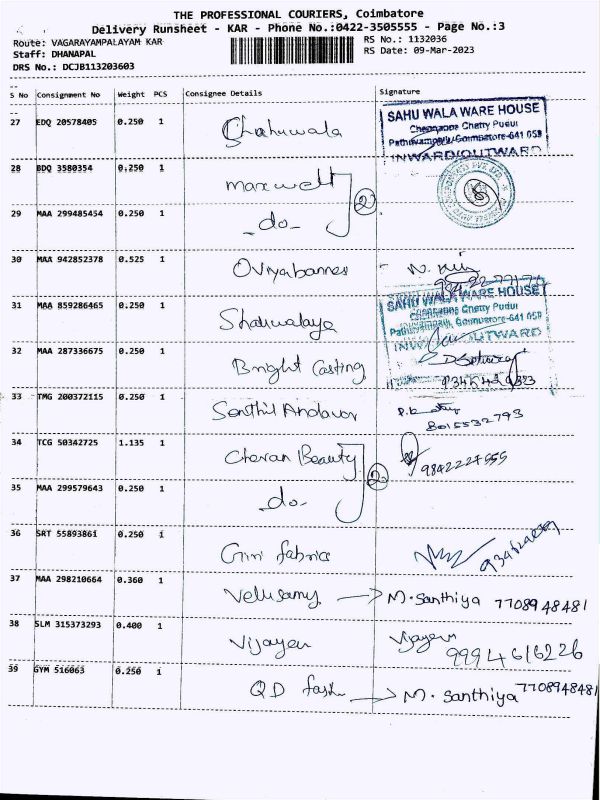 THE PROFESSIONAL COURIERS, Coimbatore
Delivery Runsheet - KAR - Phone No.:0422-3505555 - Page No.:3
Route: VAGARAYAMPALAYAM KAR
RS No.: 1132036
Staff: DHANAPAL
RS Date: 09-Mar-2023
DRS No.: DCJB113203603
S No Consignment No Weight PCS Consignee Details Signature
27 EDQ 20578405 0.250 1 Shahuwala
SAHU WALA WARE HOUSE
Chennappa Chetty Pudur
Pathuvampally, Coimbatore-641 659
INWARD/OUTWARD
28 BDQ 3580354 0.250 1 Maxwell 2
29 MAA 299485454 0.250 1 -do-
30 MAA 942852378 0.525 1 Oviyabannes
SAHU WALA WARE HOUSE
Chennappa Chetty Pudur
Pathuvampally, Coimbatore-641 659
INWARD/OUTWARD
31 MAA 859286465 0.250 1
32 MAA 287336675 0.250 1 Bright Casting
33 TMG 200372115 0.250 1 Senthil Andavar
8015532793
34 TCG 50342725 1.135 1 Cheran Beauty 2 9842227555
35 MAA 299579643 0.250 1 -do-
36 SRT 55893861 0.250 1 Giri fabrics
37 MAA 298210664 0.360 1 Velusamy → M. Santhiya 7708948481
38 SLM 315373293 0.400 1 Vijayen Vijayen
9994616226
39 GYM 516063 0.250 1 QD → M. Santhiya 7708948481